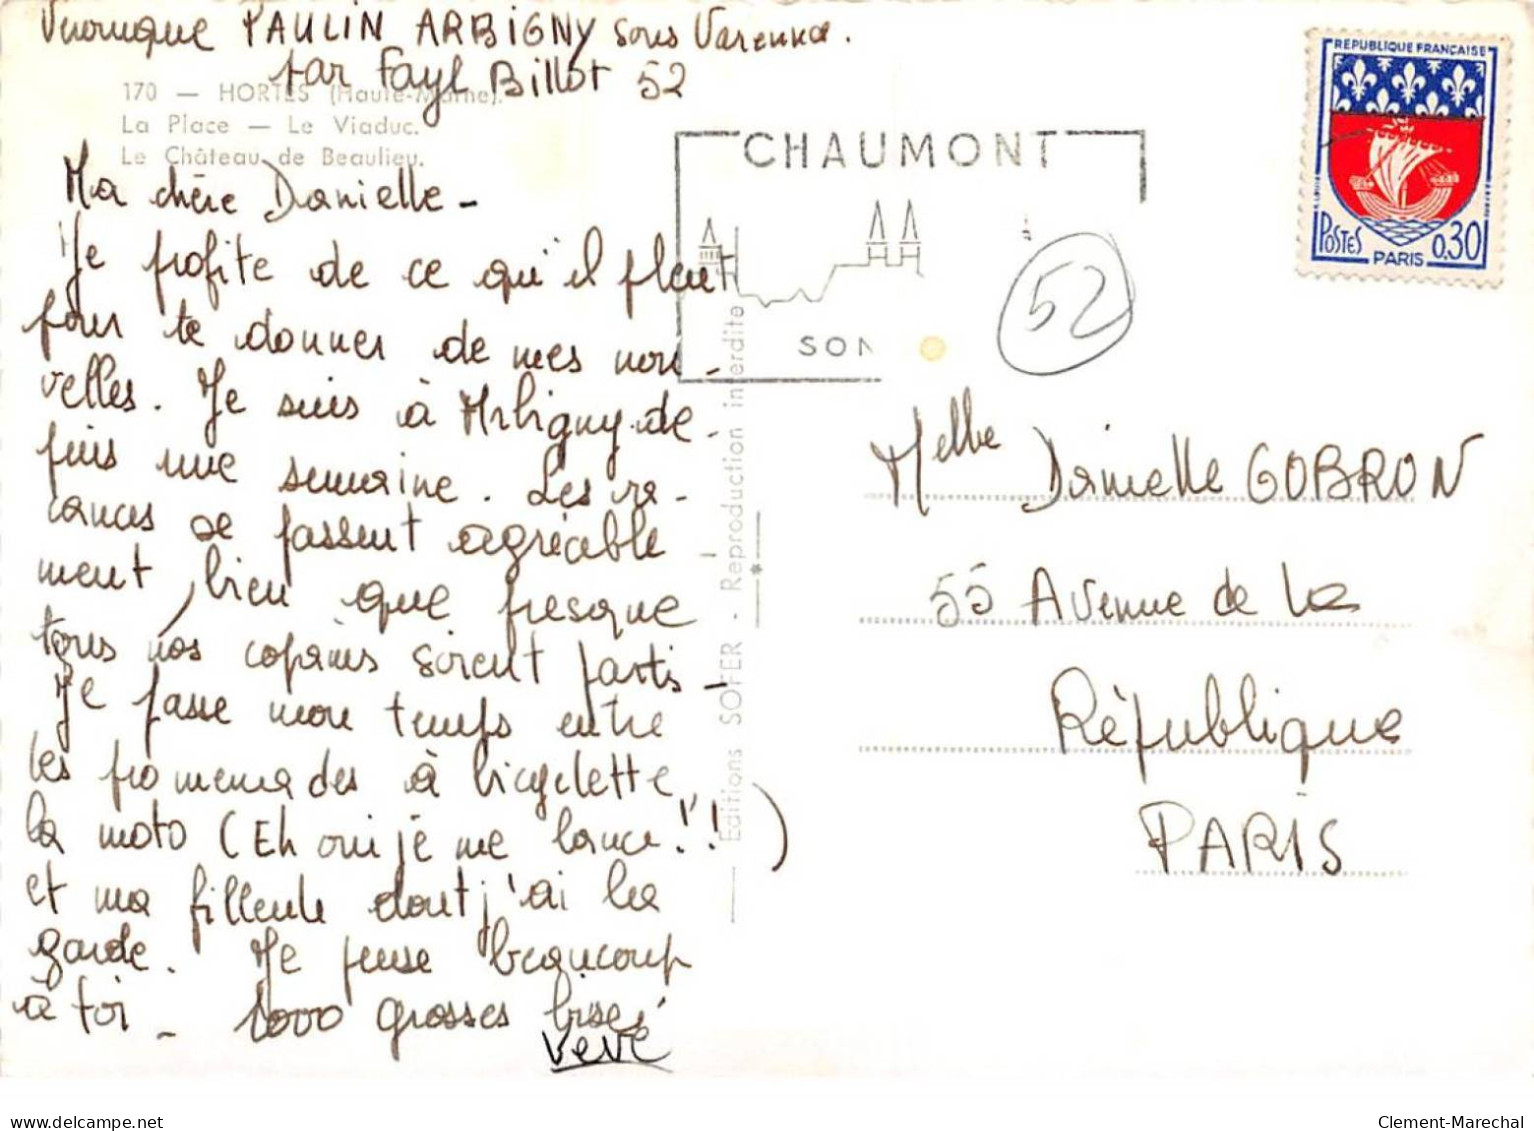 Véronique PAULIN ARBIGNY sous Varennes.
par Fayl Billot 52
170 — HORTES (Haute-Marne).
La Place — Le Viaduc.
Le Château de Beaulieu.
Ma chère Danielle -
Je profite de ce qu'il pleut
pour te donner de mes nou-
velles. Je suis à Arbigny de-
puis une semaine. Les va-
cances se passent agréable
ment, bien que presque
tous nos copains soient partis -
Je passe mon temps entre
les promenades à bicyclette,
la moto (Eh oui je me lance!!)
et ma filleule dont j'ai la
garde. Je pense beaucoup
à toi - 1000 grosses bises
Vévé
Editions SOFER - Reproduction interdite
CHAUMONT
SON
52
REPUBLIQUE FRANÇAISE
POSTES PARIS 0,30
Melle Danielle GOBRON
55 Avenue de la
République
PARIS
Clement-Marechal